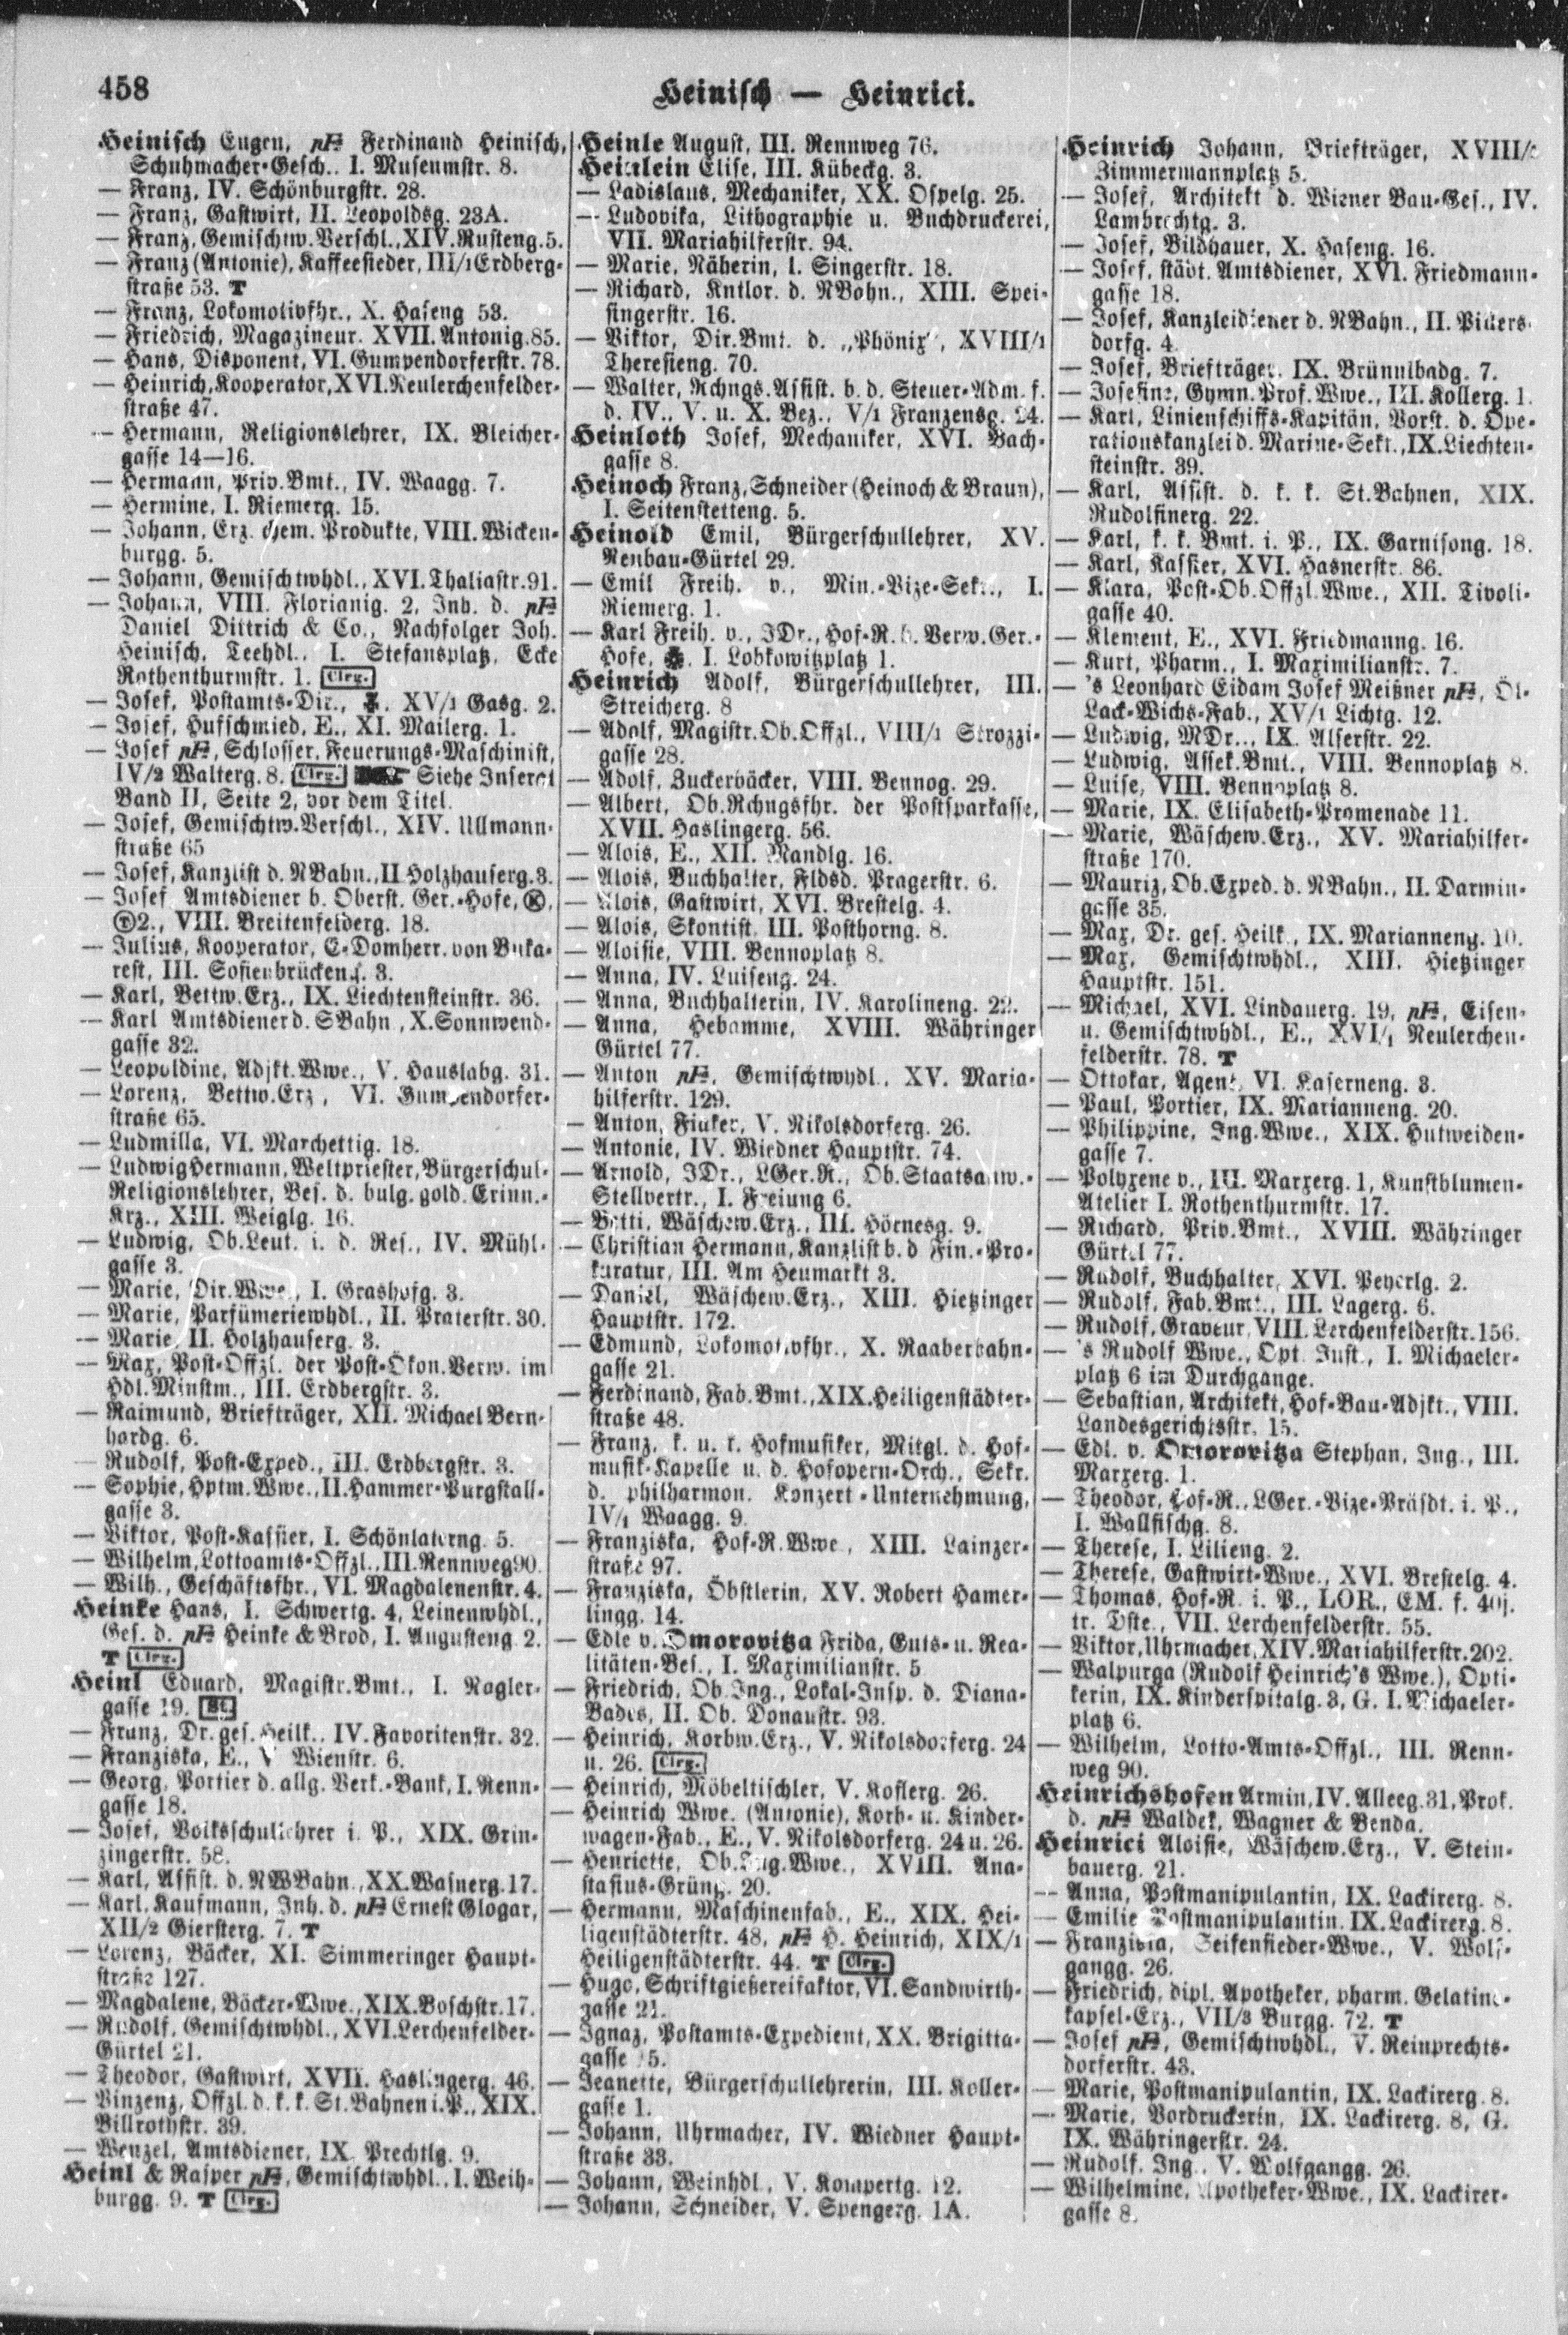 458
Heinisch — Heinrici.
Heinisch Eugen, pF Ferdinand Heinisch,
Schuhmacher-Gesch., I. Museumstr. 8.
— Franz, IV. Schönburgstr. 28.
— Franz, Gastwirt, II. Leopoldsg. 23A.
— Franz, Gemischtw.Verschl., XIV. Rusteng. 5.
— Franz (Antonie), Kaffeesieder, III/1 Erdberg-
straße 53. T
— Franz, Lokomotivfhr., X. Haseng 53.
— Friedrich, Magazineur. XVII. Antonig. 85.
— Hans, Disponent, VI. Gumpendorferstr. 78.
— Heinrich, Kooperator, XVI. Neulerchenfelder-
straße 47.
— Hermann, Religionslehrer, IX. Bleicher-
gasse 14—16.
— Hermann, Priv.Bmt., IV. Waagg. 7.
— Hermine, I. Riemerg. 15.
— Johann, Erz. chem. Produkte, VIII. Wicken-
burgg. 5.
— Johann, Gemischtwhdl., XVI. Thaliastr. 91.
— Johann, VIII. Florianig. 2, Inh. d. pF
Daniel Dittrich & Co., Nachfolger Joh.
Heinisch, Teehdl., I. Stefansplatz, Ecke
Rothenthurmstr. 1. Clrg.
— Josef, Postamts-Dir., XV/1 Gasg. 2.
— Josef, Hufschmied, E., XI. Mailerg. 1.
— Josef pF, Schlosser, Feuerungs-Maschinist,
IV/2 Walterg. 8. Clrg. Siehe Inserat
Band II, Seite 2, vor dem Titel.
— Josef, Gemischtw.Verschl., XIV. Ullmann-
straße 65
— Josef, Kanzlist d. NBahn., II Holzhauserg. 3.
— Josef Amtsdiener b. Oberst. Ger.-Hofe, Ⓚ,
Ⓣ2., VIII. Breitenfelderg. 18.
— Julius, Kooperator, E-Domherr. von Buka-
rest, III. Sofienbrückeng. 3.
— Karl, Bettw.Erz., IX. Liechtensteinstr. 36.
— Karl Amtsdiener d. SBahn., X. Sonnwend-
gasse 32.
— Leopoldine, Adjkt.Wwe., V. Hauslabg. 31.
— Lorenz, Bettw.Erz., VI. Gumpendorfer-
straße 65.
— Ludmilla, VI. Marchettig. 18.
— Ludwig Hermann, Weltpriester, Bürgerschul-
Religionslehrer, Bes. d. bulg. gold. Erinn.-
Krz., XIII. Weiglg. 16.
— Ludwig, Ob.Leut. i. d. Res., IV. Mühl-
gasse 3.
— Marie, Dir.Wwe., I. Grashofg. 3.
— Marie, Parfümeriewhdl., II. Praterstr. 30.
— Marie II. Holzhauserg. 3.
— Max, Post-Offzl. der Post-Ökon.Verw. im
Hdl.Minstm., III. Erdbergstr. 3.
— Raimund, Briefträger, XII. Michael Bern-
hardg. 6.
— Rudolf, Post-Exped., III. Erdbergstr. 3.
— Sophie, Hptm.Wwe., II. Hammer-Purgstall-
gasse 3.
— Viktor, Post-Kassier, I. Schönlaterng. 5.
— Wilhelm, Lottoamts-Offzl., III. Rennweg 90.
— Wilh., Geschäftsfhr., VI. Magdalenenstr. 4.
Heinke Hans, I. Schwertg. 4, Leinenwhdl.,
Ges. d. pF Heinke & Brod, I. Augusteng. 2.
T Clrg.
Heinl Eduard, Magistr.Bmt., I. Nagler-
gasse 19.
— Franz, Dr. ges. Heilk., IV. Favoritenstr. 32.
— Franziska, E., V Wienstr. 6.
— Georg, Portier d. allg. Verk.-Bank, I. Renn-
gasse 18.
— Josef, Volksschullehrer i. P., XIX. Grin-
zingerstr. 58.
— Karl, Assist. d. NWBahn., XX. Wasnerg. 17.
— Karl, Kaufmann, Inh. d. pF Ernest Glogar,
XII/2 Giersterg. 7. T
— Lorenz, Bäcker, XI. Simmeringer Haupt-
straße 127.
— Magdalene, Bäcker-Wwe., XIX. Boschstr. 17.
— Rudolf, Gemischtwhdl., XVI. Lerchenfelder-
Gürtel 21.
— Theodor, Gastwirt, XVII. Haslingerg. 46.
— Vinzenz, Offzl. d. k. k. St.Bahnen i. P., XIX.
Billrothstr. 39.
— Wenzel, Amtsdiener, IX. Prechtlg. 9.
Heinl & Rasper pF, Gemischtwhdl., I. Weih-
burgg. 9. T Clrg.
Heinle August, III. Rennweg 76.
Heinlein Elise, III. Kübeckg. 3.
— Ladislaus, Mechaniker, XX. Ospelg. 25.
— Ludovika, Lithographie u. Buchdruckerei,
VII. Mariahilferstr. 94.
— Marie, Näherin, I. Singerstr. 18.
— Richard, Kntlor. d. NBahn., XIII. Spei-
singerstr. 16.
— Viktor, Dir.Bmt. d. „Phönix“, XVIII/1
Theresieng. 70.
— Walter, Rchngs.Assist. b. d. Steuer-Adm. f.
d. IV., V. u. X. Bez., V/1 Franzensg. 24.
Heinloth Josef, Mechaniker, XVI. Bach-
gasse 8.
Heinoch Franz, Schneider (Heinoch & Braun),
I. Seitenstetteng. 5.
Heinold Emil, Bürgerschullehrer, XV.
Neubau-Gürtel 29.
— Emil Freih. v., Min.-Vize-Sekr., I.
Riemerg. 1.
— Karl Freih. v., JDr., Hof-R. b. Verw.Ger.-
Hofe, I. Lobkowitzplatz 1.
Heinrich Adolf, Bürgerschullehrer, III.
Streicherg. 8
— Adolf, Magistr.Ob.Offzl., VIII/1 Strozzi-
gasse 28.
— Adolf, Zuckerbäcker, VIII. Bennog. 29.
— Albert, Ob.Rchngsfhr. der Postsparkasse,
XVII. Haslingerg. 56.
— Alois, E., XII. Mandlg. 16.
— Alois, Buchhalter, Fldsd. Pragerstr. 6.
— Alois, Gastwirt, XVI. Brestelg. 4.
— Alois, Skontist, III. Posthorng. 8.
— Aloisie, VIII. Bennoplatz 8.
— Anna, IV. Luiseng. 24.
— Anna, Buchhalterin, IV. Karolineng. 22.
— Anna, Hebamme, XVIII. Währinger
Gürtel 77.
— Anton pF, Gemischtwhdl., XV. Maria-
hilferstr. 129.
— Anton, Fiaker, V. Nikolsdorferg. 26.
— Antonie, IV. Wiedner Hauptstr. 74.
— Arnold, JDr., LGer.R., Ob.Staatsanw.-
Stellvertr., I. Freiung 6.
— Betti, Wäschew.Erz., III. Hörnesg. 9.
— Christian Hermann, Kanzlist b. d Fin.-Pro-
kuratur, III. Am Heumarkt 3.
— Daniel, Wäschew.Erz., XIII. Hietzinger
Hauptstr. 172.
— Edmund, Lokomotivfhr., X. Raaberbahn-
gasse 21.
— Ferdinand, Fab.Bmt., XIX. Heiligenstädter-
straße 48.
— Franz, k. u. k. Hofmusiker, Mitgl. d. Hof-
musik-Kapelle u. d. Hofopern-Orch., Sekr.
d. philharmon. Konzert-Unternehmung,
IV/1 Waagg. 9.
— Franziska, Hof-R.Wwe., XIII. Lainzer-
straße 97.
— Franziska, Öbstlerin, XV. Robert Hamer-
lingg. 14.
— Edle v. Omorovitza Frida, Guts- u. Rea-
litäten-Bes., I. Maximilianstr. 5
— Friedrich, Ob.Ing., Lokal-Insp. d. Diana-
Bades, II. Ob. Donaustr. 93.
— Heinrich, Korbw.Erz., V. Nikolsdorferg. 24
u. 26. Clrg.
— Heinrich, Möbeltischler, V. Koflerg. 26.
— Heinrich Wwe. (Antonie), Korb- u. Kinder-
wagen-Fab., E., V. Nikolsdorferg. 24 u. 26.
— Henriette, Ob.Ing.Wwe., XVIII. Ana-
stasius-Grüng. 20.
— Hermann, Maschinenfab., E., XIX. Hei-
ligenstädterstr. 48, pF H. Heinrich, XIX/1
Heiligenstädterstr. 44. T Clrg.
— Hugo, Schriftgießereifaktor, VI. Sandwirth-
gasse 21.
— Ignaz, Postamts-Expedient, XX. Brigitta-
gasse 5.
— Jeanette, Bürgerschullehrerin, III. Koller-
gasse 1.
— Johann, Uhrmacher, IV. Wiedner Haupt-
straße 33.
— Johann, Weinhdl., V. Kompertg. 12.
— Johann, Schneider, V. Spengerg. 1A.
Heinrich Johann, Briefträger, XVIII/
Zimmermannplatz 5.
— Josef, Architekt d. Wiener Bau-Ges., IV.
Lambrechtg. 3.
— Josef, Bildhauer, X. Haseng. 16.
— Josef, städt. Amtsdiener, XVI. Friedmann-
gasse 18.
— Josef, Kanzleidiener d. NBahn., II. Pillers-
dorfg. 4.
— Josef, Briefträger, IX. Brünnlbadg. 7.
— Josefine, Gymn.Prof.Wwe., III. Kollerg. 1.
— Karl, Linienschiffs-Kapitän, Vorst. d. Ope-
rationskanzlei d. Marine-Sekt., IX. Liechten-
steinstr. 39.
— Karl, Assist. d. k. k. St.Bahnen, XIX.
Rudolfinerg. 22.
— Karl, k. k. Bmt. i. P., IX. Garnisong. 18.
— Karl, Kassier, XVI. Hasnerstr. 86.
— Klara, Post-Ob.Offzl.Wwe., XII. Tivoli-
gasse 40.
— Klement, E., XVI. Friedmanng. 16.
— Kurt, Pharm., I. Maximilianstr. 7.
— 's Leonhard Eidam Josef Meißner pF, Öl-
Lack-Wichs-Fab., XV/1 Lichtg. 12.
— Ludwig, MDr., IX. Alserstr. 22.
— Ludwig, Assek.Bmt., VIII. Bennoplatz 8.
— Luise, VIII. Bennoplatz 8.
— Marie, IX. Elisabeth-Promenade 11.
— Marie, Wäschew.Erz., XV. Mariahilfer-
straße 170.
— Mauriz, Ob.Exped. d. NBahn., II. Darwin-
gasse 35.
— Max, Dr. ges. Heilk., IX. Marianneng. 10.
— Max, Gemischtwhdl., XIII. Hietzinger
Hauptstr. 151.
— Michael, XVI. Lindauerg. 19, pF, Eisen-
u. Gemischtwhdl., E., XVI/1 Neulerchen-
felderstr. 78. T
— Ottokar, Agent, VI. Kaserneng. 3.
— Paul, Portier, IX. Marianneng. 20.
— Philippine, Ing.Wwe., XIX. Hutweiden-
gasse 7.
— Polyxene v., III. Marxerg. 1, Kunstblumen-
Atelier I. Rothenthurmstr. 17.
— Richard, Priv.Bmt., XVIII. Währinger
Gürtel 77.
— Rudolf, Buchhalter, XVI. Peyerlg. 2.
— Rudolf, Fab.Bmt., III. Lagerg. 6.
— Rudolf, Graveur, VIII. Lerchenfelderstr. 156.
— 's Rudolf Wwe., Opt. Inst., I. Michaeler-
platz 6 im Durchgange.
— Sebastian, Architekt, Hof-Bau-Adjkt., VIII.
Landesgerichtsstr. 15.
— Edl. v. Omorovitza Stephan, Ing., III.
Marxerg. 1.
— Theodor, Hof-R., LGer.-Vize-Präsdt. i. P.,
I. Wallfischg. 8.
— Therese, I. Lilieng. 2.
— Therese, Gastwirt-Wwe., XVI. Brestelg. 4.
— Thomas, Hof-R. i. P., LOR., EM. f. 40j.
tr. Dste., VII. Lerchenfelderstr. 55.
— Viktor, Uhrmacher, XIV. Mariahilferstr. 202.
— Walpurga (Rudolf Heinrich's Wwe.), Opti-
kerin, IX. Kinderspitalg. 3, G. I. Michaeler-
platz 6.
— Wilhelm, Lotto-Amts-Offzl., III. Renn-
weg 90.
Heinrichshofen Armin, IV. Alleeg. 31, Prok.
d. pF Waldek, Wagner & Benda.
Heinrici Aloisie, Wäschew.Erz., V. Stein-
bauerg. 21.
— Anna, Postmanipulantin, IX. Lackirerg. 8.
— Emilie Postmanipulantin, IX. Lackirerg. 8.
— Franziska, Seifensieder-Wwe., V. Wolf-
gangg. 26.
— Friedrich, dipl. Apotheker, pharm. Gelatine-
kapsel-Erz., VII/3 Burgg. 72. T
— Josef pF, Gemischtwhdl., V. Reinprechts-
dorferstr. 43.
— Marie, Postmanipulantin, IX. Lackirerg. 8.
— Marie, Vordruckerin, IX. Lackirerg. 8, G.
IX. Währingerstr. 24.
— Rudolf, Ing., V. Wolfgangg. 26.
— Wilhelmine, Apotheker-Wwe., IX. Lackirer-
gasse 8.